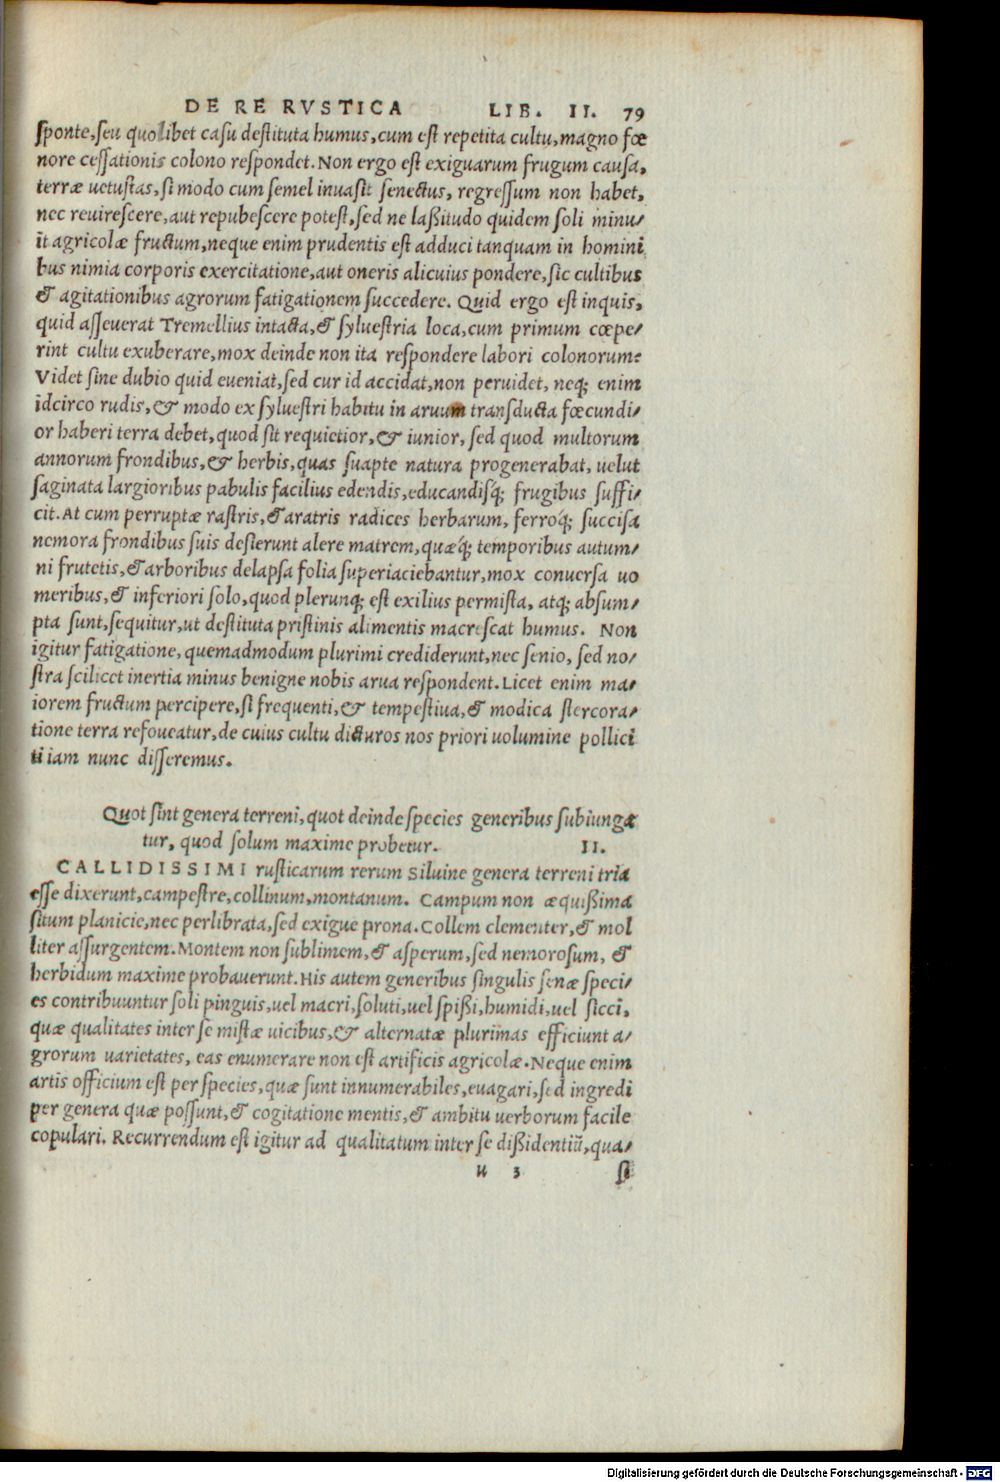 DE RE RVSTICA LIB. II. 79
sponte, seu quolibet casu destituta humus, cum est repetita cultu, magno fœ
nore cessationis colono respondet. Non ergo est exiguarum frugum causa,
terræ uetustas, si modo cum semel inuasit senectus, regressum non habet,
nec reuirescere, aut repubescere potest, sed ne laßitudo quidem soli minu/
it agricolæ fructum, neque enim prudentis est adduci tanquam in homini
bus nimia corporis exercitatione, aut oneris alicuius pondere, sic cultibus
& agitationibus agrorum fatigationem succedere. Quid ergo est inquis,
quid asseuerat Tremellius intacta, & syluestria loca, cum primum cœpe/
rint cultu exuberare, mox deinde non ita respondere labori colonorum?
Videt sine dubio quid eueniat, sed cur id accidat, non peruidet, neq; enim
idcirco rudis, & modo ex syluestri habitu in aruum transducta fœcundi/
or haberi terra debet, quod sit requietior, & iunior, sed quod multorum
annorum frondibus, & herbis, quas suapte natura progenerabat, uelut
saginata largioribus pabulis facilius edendis, educandisq́; frugibus suffi/
cit. At cum perruptæ rastris, & aratris radices herbarum, ferroq́; succisa
nemora frondibus suis desierunt alere matrem, quæq́; temporibus autum/
ni frutetis, & arboribus delapsa folia superiaciebantur, mox conuersa uo
meribus, & inferiori solo, quod plerunq; est exilius permista, atq; absum/
pta sunt, sequitur, ut destituta pristinis alimentis macrescat humus. Non
igitur fatigatione, quemadmodum plurimi crediderunt, nec senio, sed no/
stra scilicet inertia minus benigne nobis arua respondent. Licet enim ma/
iorem fructum percipere, si frequenti, & tempestiua, & modica stercora/
tione terra refoueatur, de cuius cultu dicturos nos priori uolumine pollici
ti iam nunc disseremus.
Quot sint genera terreni, quot deinde species generibus subiunga
tur, quod solum maxime probetur. II.
CALLIDISSIMI rusticarum rerum Siluine genera terreni tria
esse dixerunt, campestre, collinum, montanum. Campum non æquißima
situm planicie, nec perlibrata, sed exigue prona. Collem clementer, & mol
liter assurgentem. Montem non sublimem, & asperum, sed nemorosum, &
herbidum maxime probauerunt. His autem generibus singulis senæ speci/
es contribuuntur soli pinguis, uel macri, soluti, uel spißi, humidi, uel sicci,
quæ qualitates inter se mistæ uicibus, & alternatæ plurimas efficiunt a/
grorum uarietates, eas enumerare non est artificis agricolæ. Neque enim
artis officium est per species, quæ sunt innumerabiles, euagari, sed ingredi
per genera quæ possunt, & cogitatione mentis, & ambitu uerborum facile
copulari. Recurrendum est igitur ad qualitatum inter se dißidentiũ, qua/
u 3 si
Digitalisierung gefördert durch die Deutsche Forschungsgemeinschaft - DFG